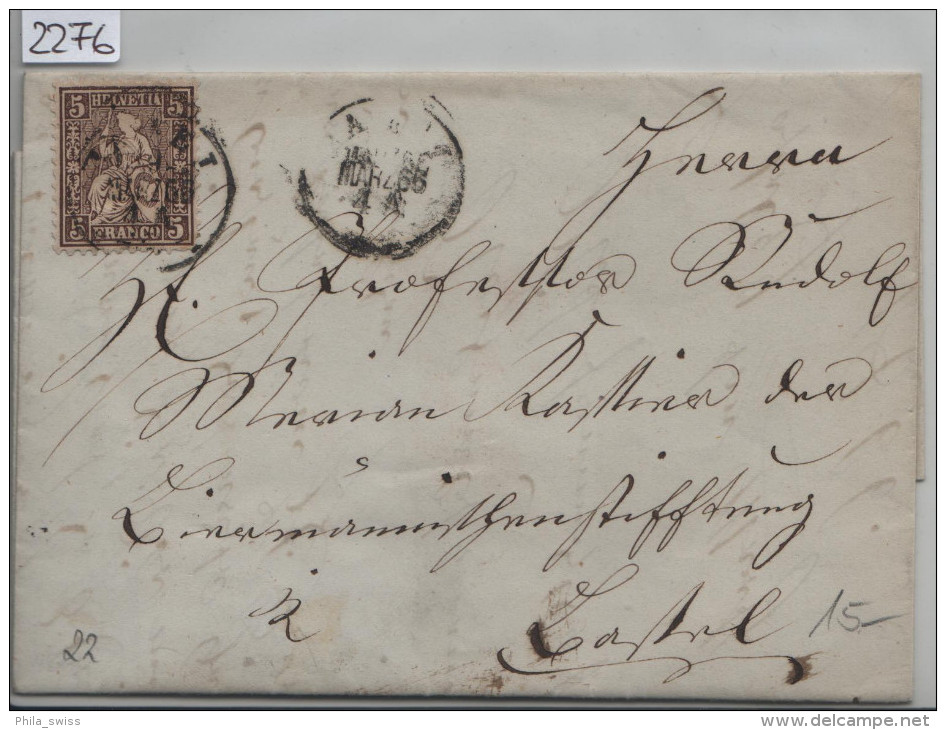 2276
5 HELVETIA 5
5 FRANCO 5
MARZ 66
Herrn
H. Professor Rudolf
Merian Kassier der
Biermännischenstifftung
in
Basel
15-
22
Phila_swiss
www.delcampe.net